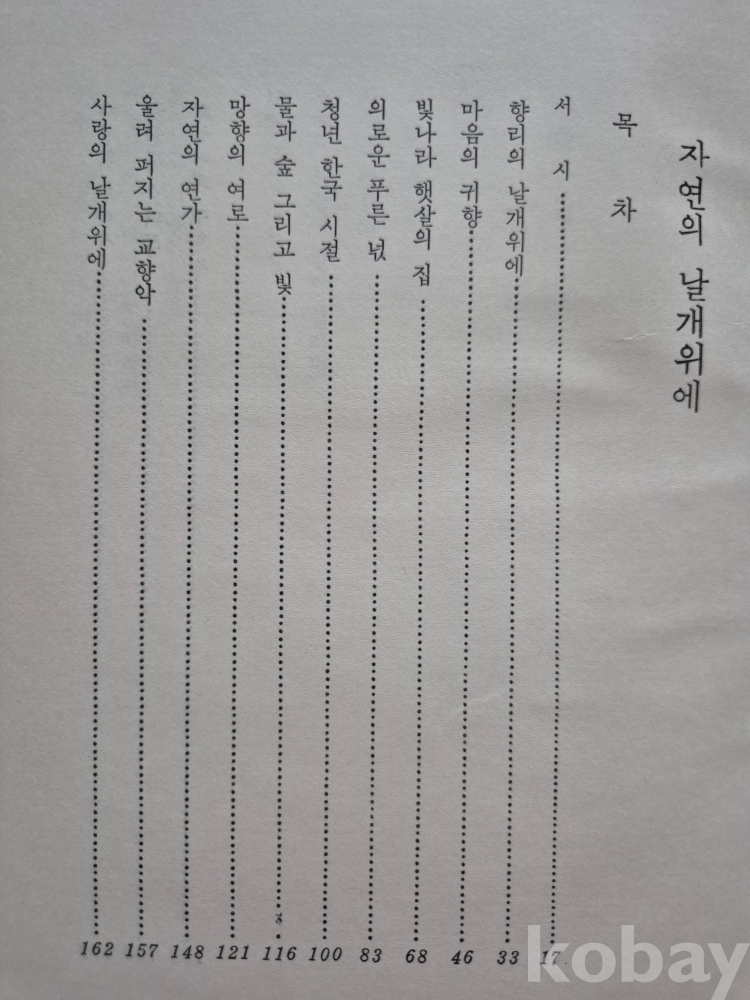 자연의 날개위에
목 차
서 시 17
향리의 날개위에 33
마음의 귀향 46
빛나라 햇살의 집 68
의로운 푸른 넋 83
청년 한국 시절 100
물과 숲 그리고 빛 116
망향의 여로 121
자연의 연가 148
울려 퍼지는 교향악 157
사랑의 날개위에 162
kobay